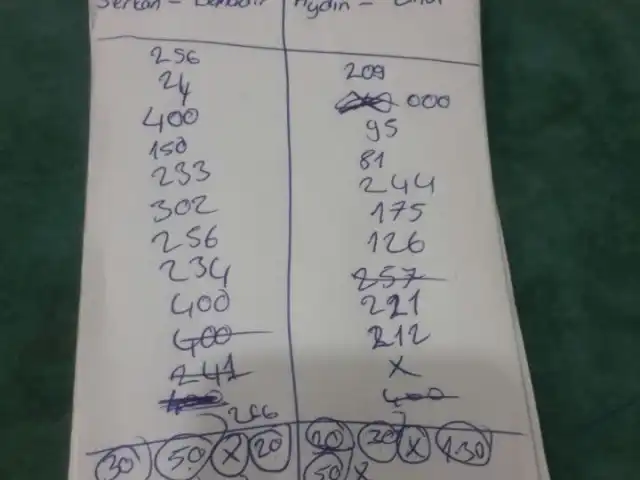 Serkan - Aydın -
256 209
24 000
400 95
150 81
233 244
302 175
256 126
234 257
400 221
400 212
241 X
400 400
266
30 50 X 20 20 20 X 130
50 X